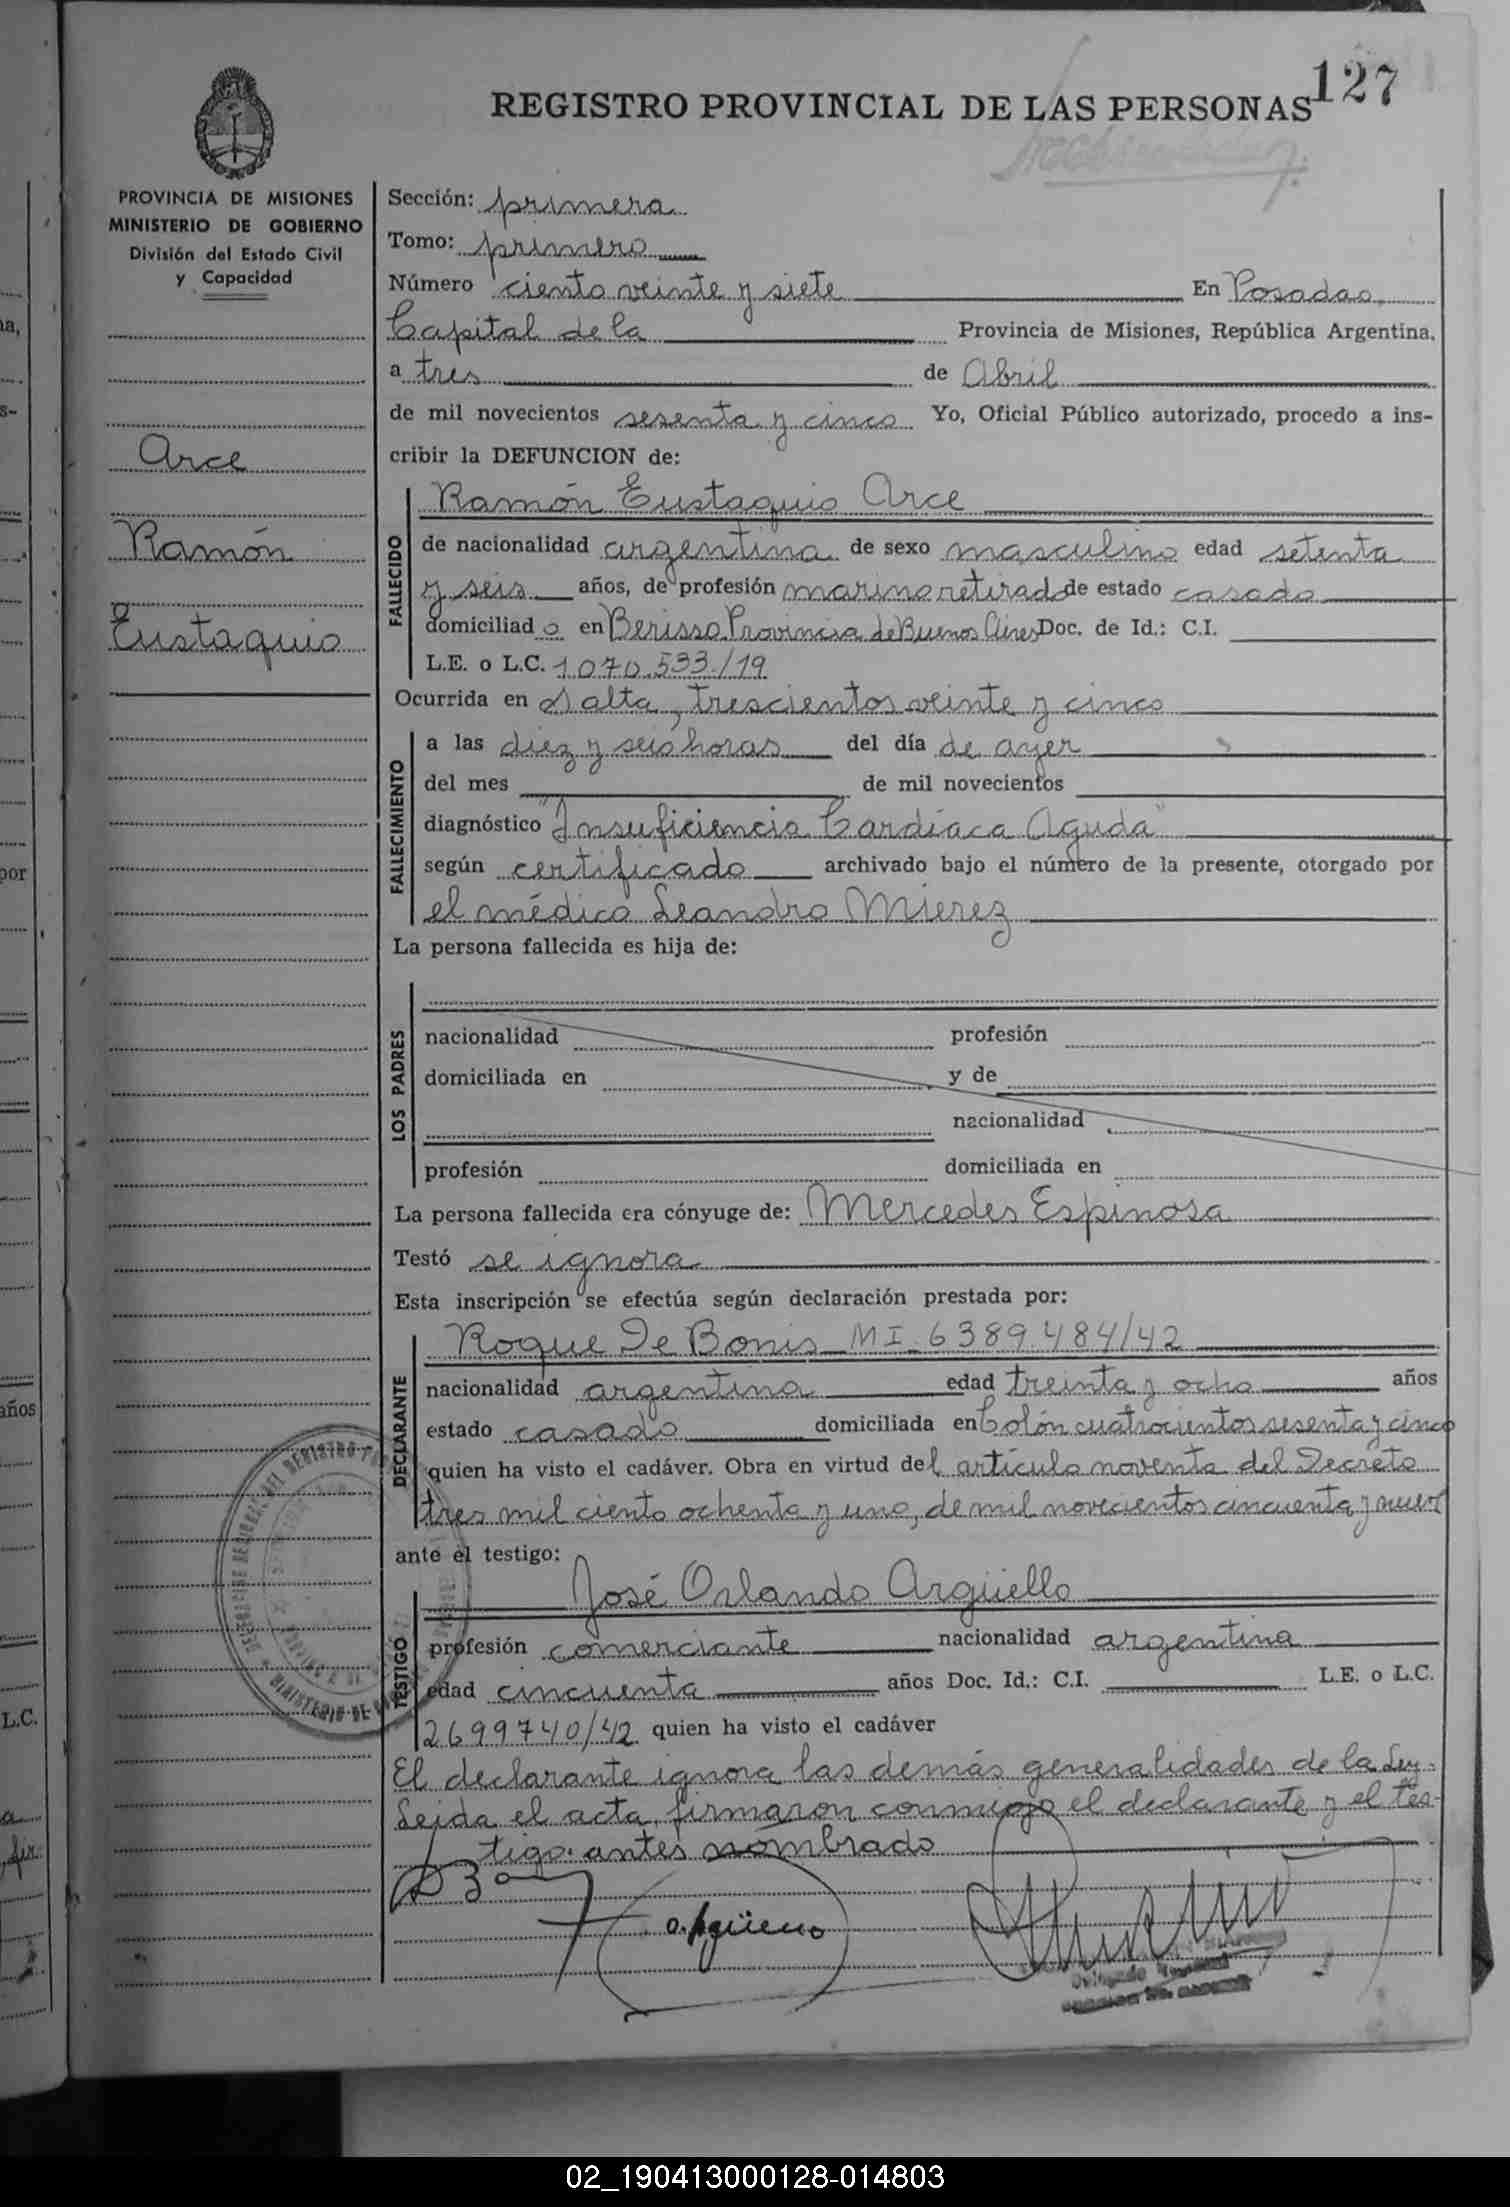 127
REGISTRO PROVINCIAL DE LAS PERSONAS
PROVINCIA DE MISIONES
MINISTERIO DE GOBIERNO
División del Estado Civil
y Capacidad
Arce
Ramón
Eustaquio
Sección: primera
Tomo: primero
Número ciento veinte y siete En Posadas,
Capital de la Provincia de Misiones, República Argentina,
a tres de Abril
de mil novecientos sesenta y cinco Yo, Oficial Público autorizado, procedo a ins-
cribir la DEFUNCION de:
FALLECIDO
Ramón Eustaquio Arce
de nacionalidad argentina de sexo masculino edad setenta
y seis años, de profesión marino retirado de estado casado
domiciliado en Berisso Provincia de Buenos Aires Doc. de Id.: C.I.
L.E. o L.C. 1070.533/19
Ocurrida en Salta, trescientos veinte y cinco
FALLECIMIENTO
a las diez y seis horas del día de ayer
del mes de mil novecientos
diagnóstico "Insuficiencia Cardíaca Aguda"
según certificado archivado bajo el número de la presente, otorgado por
el médico Leandro Mierez
La persona fallecida es hija de:
LOS PADRES
nacionalidad profesión
domiciliada en y de
nacionalidad
profesión domiciliada en
La persona fallecida era cónyuge de: Mercedes Espinosa
Testó se ignora
Esta inscripción se efectúa según declaración prestada por:
DECLARANTE
Roque De Bonis MI. 6389.484/42
nacionalidad argentina edad treinta y ocho años
estado casado domiciliada en Colón cuatrocientos sesenta y cinco
quien ha visto el cadáver. Obra en virtud del artículo noventa del Decreto
tres mil ciento ochenta y uno, de mil novecientos cincuenta y nueve
ante el testigo:
TESTIGO
José Orlando Argüello
profesión comerciante nacionalidad argentina
edad cincuenta años Doc. Id.: C.I. L.E. o L.C.
2699740/42 quien ha visto el cadáver
El declarante ignora las demás generalidades de la Ley.
Leida el acta, firmaron conmigo el declarante y el tes-
tigo antes nombrado
O. Argüello
02_190413000128-014803